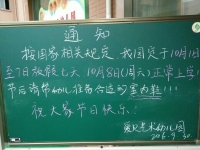 通知
按国家相关规定,我园定于10月1日
至7日放假七天,10月8日(周六)正常上学!
节后请带幼儿准备合适的室内鞋!!!
祝大家节日快乐!
艺术幼儿园
9.30